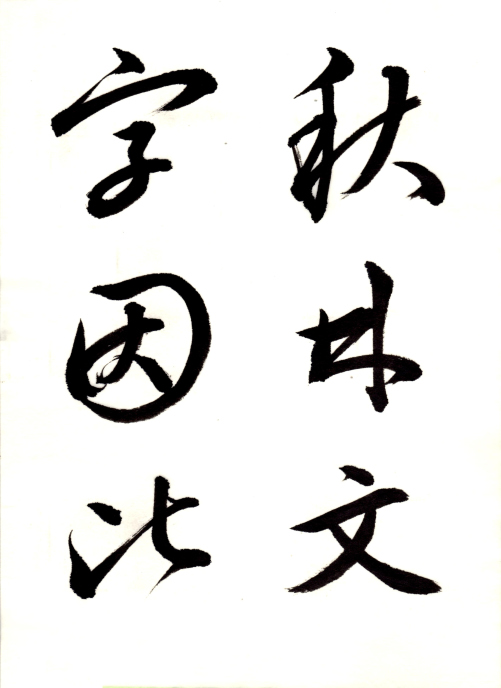 秋文
字因此